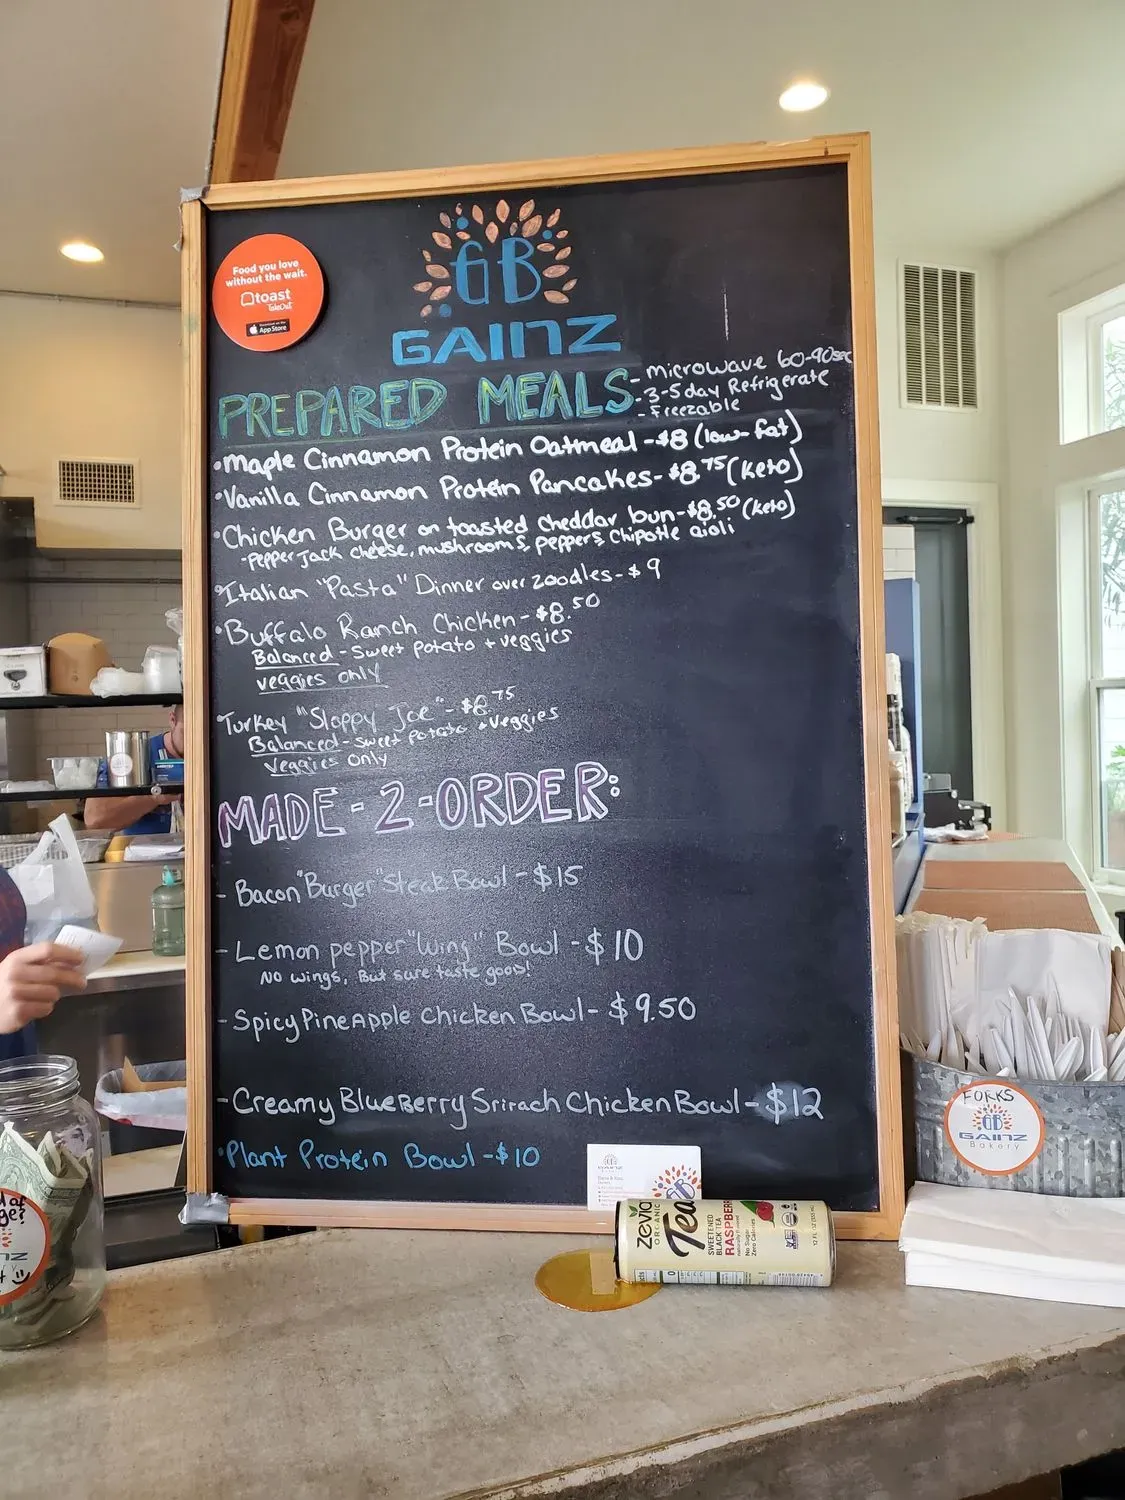 Food you love
without the wait.
toast
TakeOut
Download on the
App Store
GB
GAINZ
PREPARED MEALS
- microwave 60-90sec
- 3-5 day Refrigerate
- Freezable
• Maple Cinnamon Protein Oatmeal - $8 (low-fat)
• Vanilla Cinnamon Protein Pancakes - $8.75 (keto)
• Chicken Burger on toasted cheddar bun - $8.50 (keto)
- Pepper Jack cheese, mushrooms, peppers, chipotle aioli
• Italian "Pasta" Dinner over zoodles - $9
• Buffalo Ranch Chicken - $8.50
Balanced - sweet potato + veggies
veggies only
• Turkey "Sloppy Joe" - $8.75
Balanced - sweet potato + veggies
veggies only
MADE-2-ORDER:
- Bacon "Burger" Steak Bowl - $15
- Lemon pepper "Wing" Bowl - $10
No wings, But sure taste good!
- Spicy PineApple Chicken Bowl - $9.50
- Creamy BlueBerry Srirach Chicken Bowl - $12
• Plant Protein Bowl - $10
GAINZ
GB
zevia
ORGANIC
Tea
SWEETENED
BLACK TEA
RASPBERRY
naturally flavored
No Sugar
Zero Calories
FORKS
GB
GAINZ
Bakery